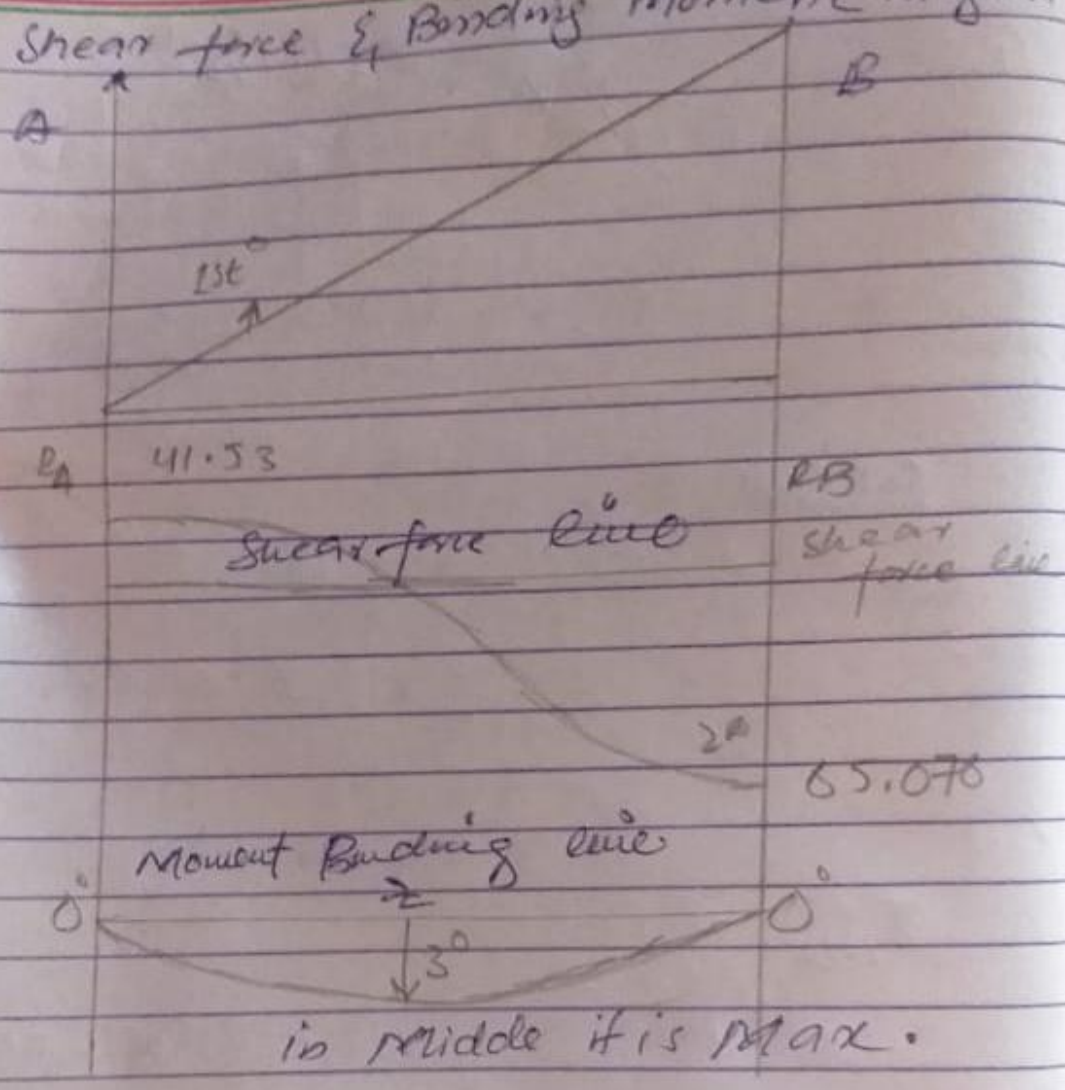 Shear force & Bending Moment
A
B
1st°
RA 41.53
RB
Shear force line
Shear
force line
2°
65.076
Moment Bending line
0° 0°
3°
in Middle it is Max.